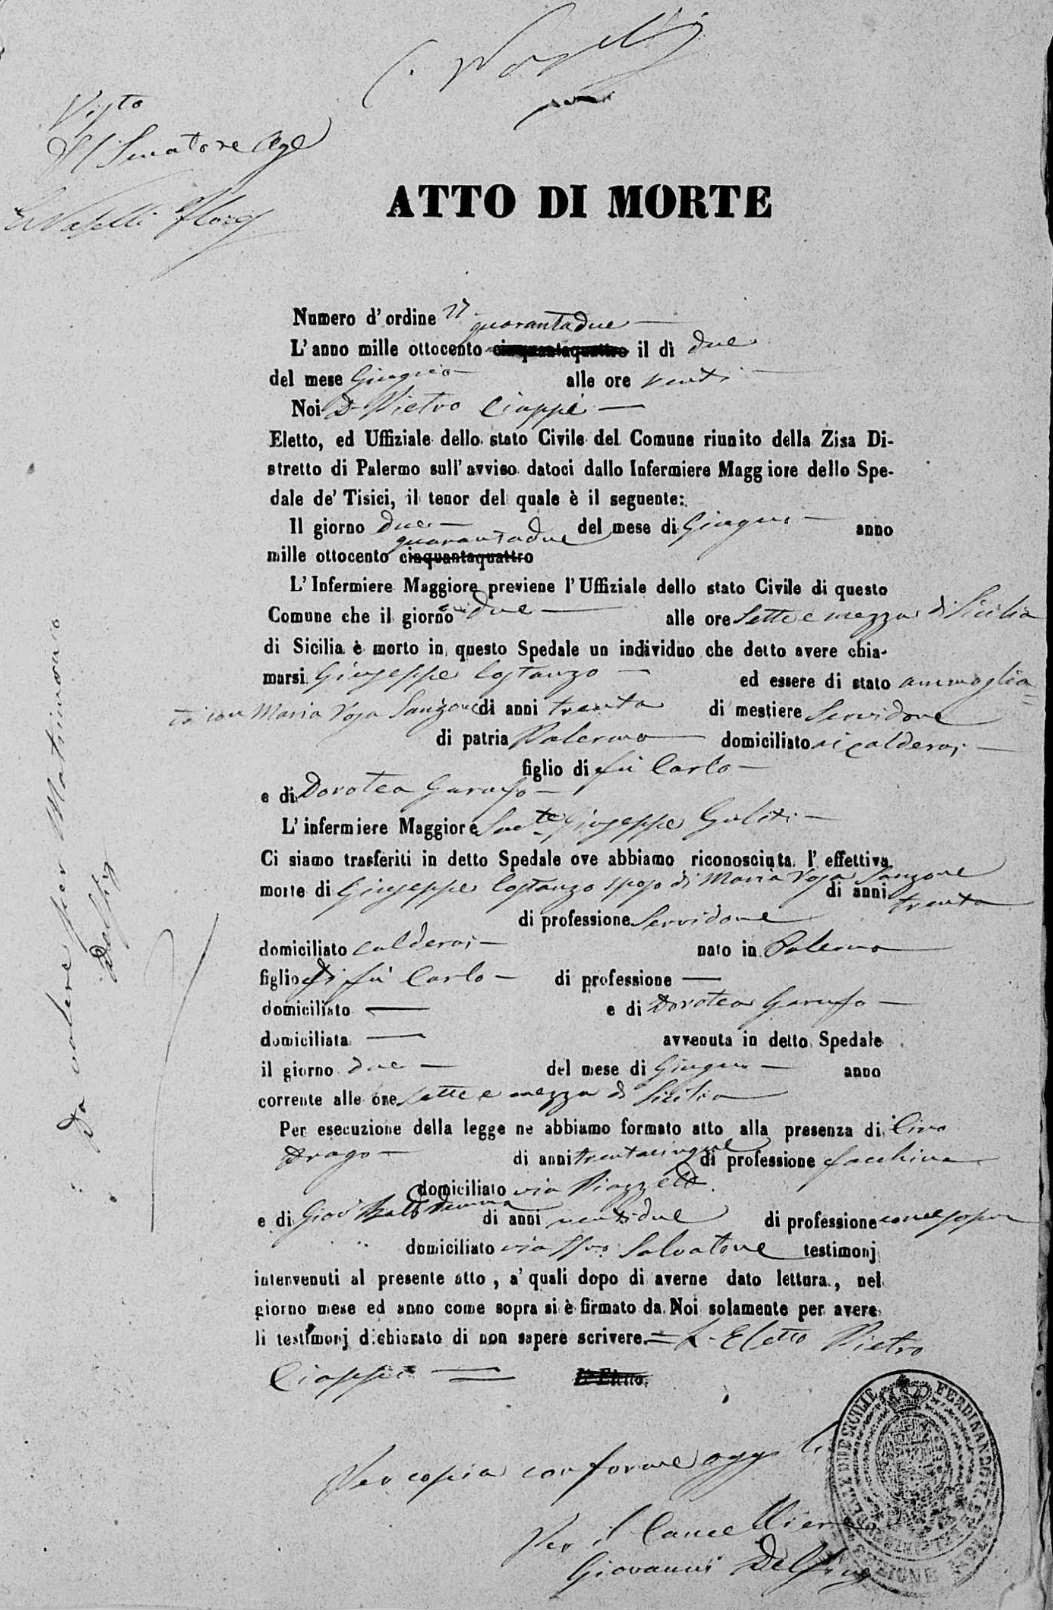 Visto
Il Senatore
ATTO DI MORTE
Numero d'ordine 27
quarantadue
L'anno mille ottocento cinquantaquattro il dì due
del mese Giugno alle ore venti
Noi D. Pietro Ciappè
Eletto, ed Uffiziale dello stato Civile del Comune riunito della Zisa Di-
stretto di Palermo sull'avviso datoci dallo Infermiere Maggiore dello Spe-
dale de' Tisici, il tenor del quale è il seguente:
Il giorno due del mese di Giugno anno
quarantadue
mille ottocento cinquantaquattro
L'Infermiere Maggiore previene l'Uffiziale dello stato Civile di questo
Comune che il giorno due alle ore Sette e mezza di Sicilia
di Sicilia è morto in questo Spedale un individuo che detto avere chia-
marsi Giuseppe Costanzo ed essere di stato ammoglia=
to con Maria Rosa Sanzone di anni trenta di mestiere Servidore
di patria Palermo domiciliato ai Calderai
figlio di fu Carlo
e di Dorotea Garufo
L'infermiere Maggiore Giuseppe
Ci siamo trasferiti in detto Spedale ove abbiamo riconosciuta l'effettiva
morte di Giuseppe Costanzo sposo di Maria Rosa Sanzone di anni trenta
di professione Servidore
domiciliato Calderai nato in Palermo
figlio di fu Carlo di professione —
domiciliato — e di Dorotea Garufo
domiciliata — avvenuta in detto Spedale
il giorno due del mese di Giugno anno
corrente alle ore sette e mezza di Sicilia
Per esecuzione della legge ne abbiamo formato atto alla presenza di Ciro
Drago di anni trentacinque di professione facchino
domiciliato via Piazzetta
e di Giov Batta di anni ventidue di professione come sopra
domiciliato via Salvatore testimonj
intervenuti al presente atto, a' quali dopo di averne dato lettura, nel
giorno mese ed anno come sopra si è firmato da Noi solamente per avere
li testimonj dichiarato di non sapere scrivere = L'Eletto Pietro
Ciappè = L'Eletto.
Per copia conforme oggi li
Per il Cancelliere
Giovanni Delfino
Da valere per Matrimonio
Delfino
FERDINANDO II